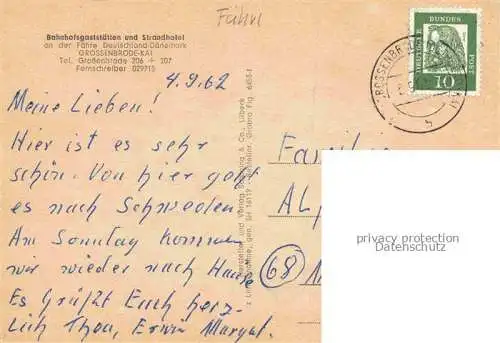 Führl
Bahnhofsgaststätten und Strandhotel
an der Fähre Deutschland-Dänemark
GROSSENBRODE-KAI
Tel. Großenbrode 206 + 207
Fernschreiber 029715
4.9.62
Meine Lieben!
Hier ist es sehr
schön. Von hier geht
es nach Schweden.
Am Sonntag kommen
wir wieder nach Hause
Es Grüßt Euch herz-
lich Erwin Margot.
Hersteller und Verlag & Co., Lübeck
gen. SH 16119
DEUTSCHE BUNDESPOST
10
GROSSENBRODE KAI
b
Familie
(68)
privacy protection
Datenschutz